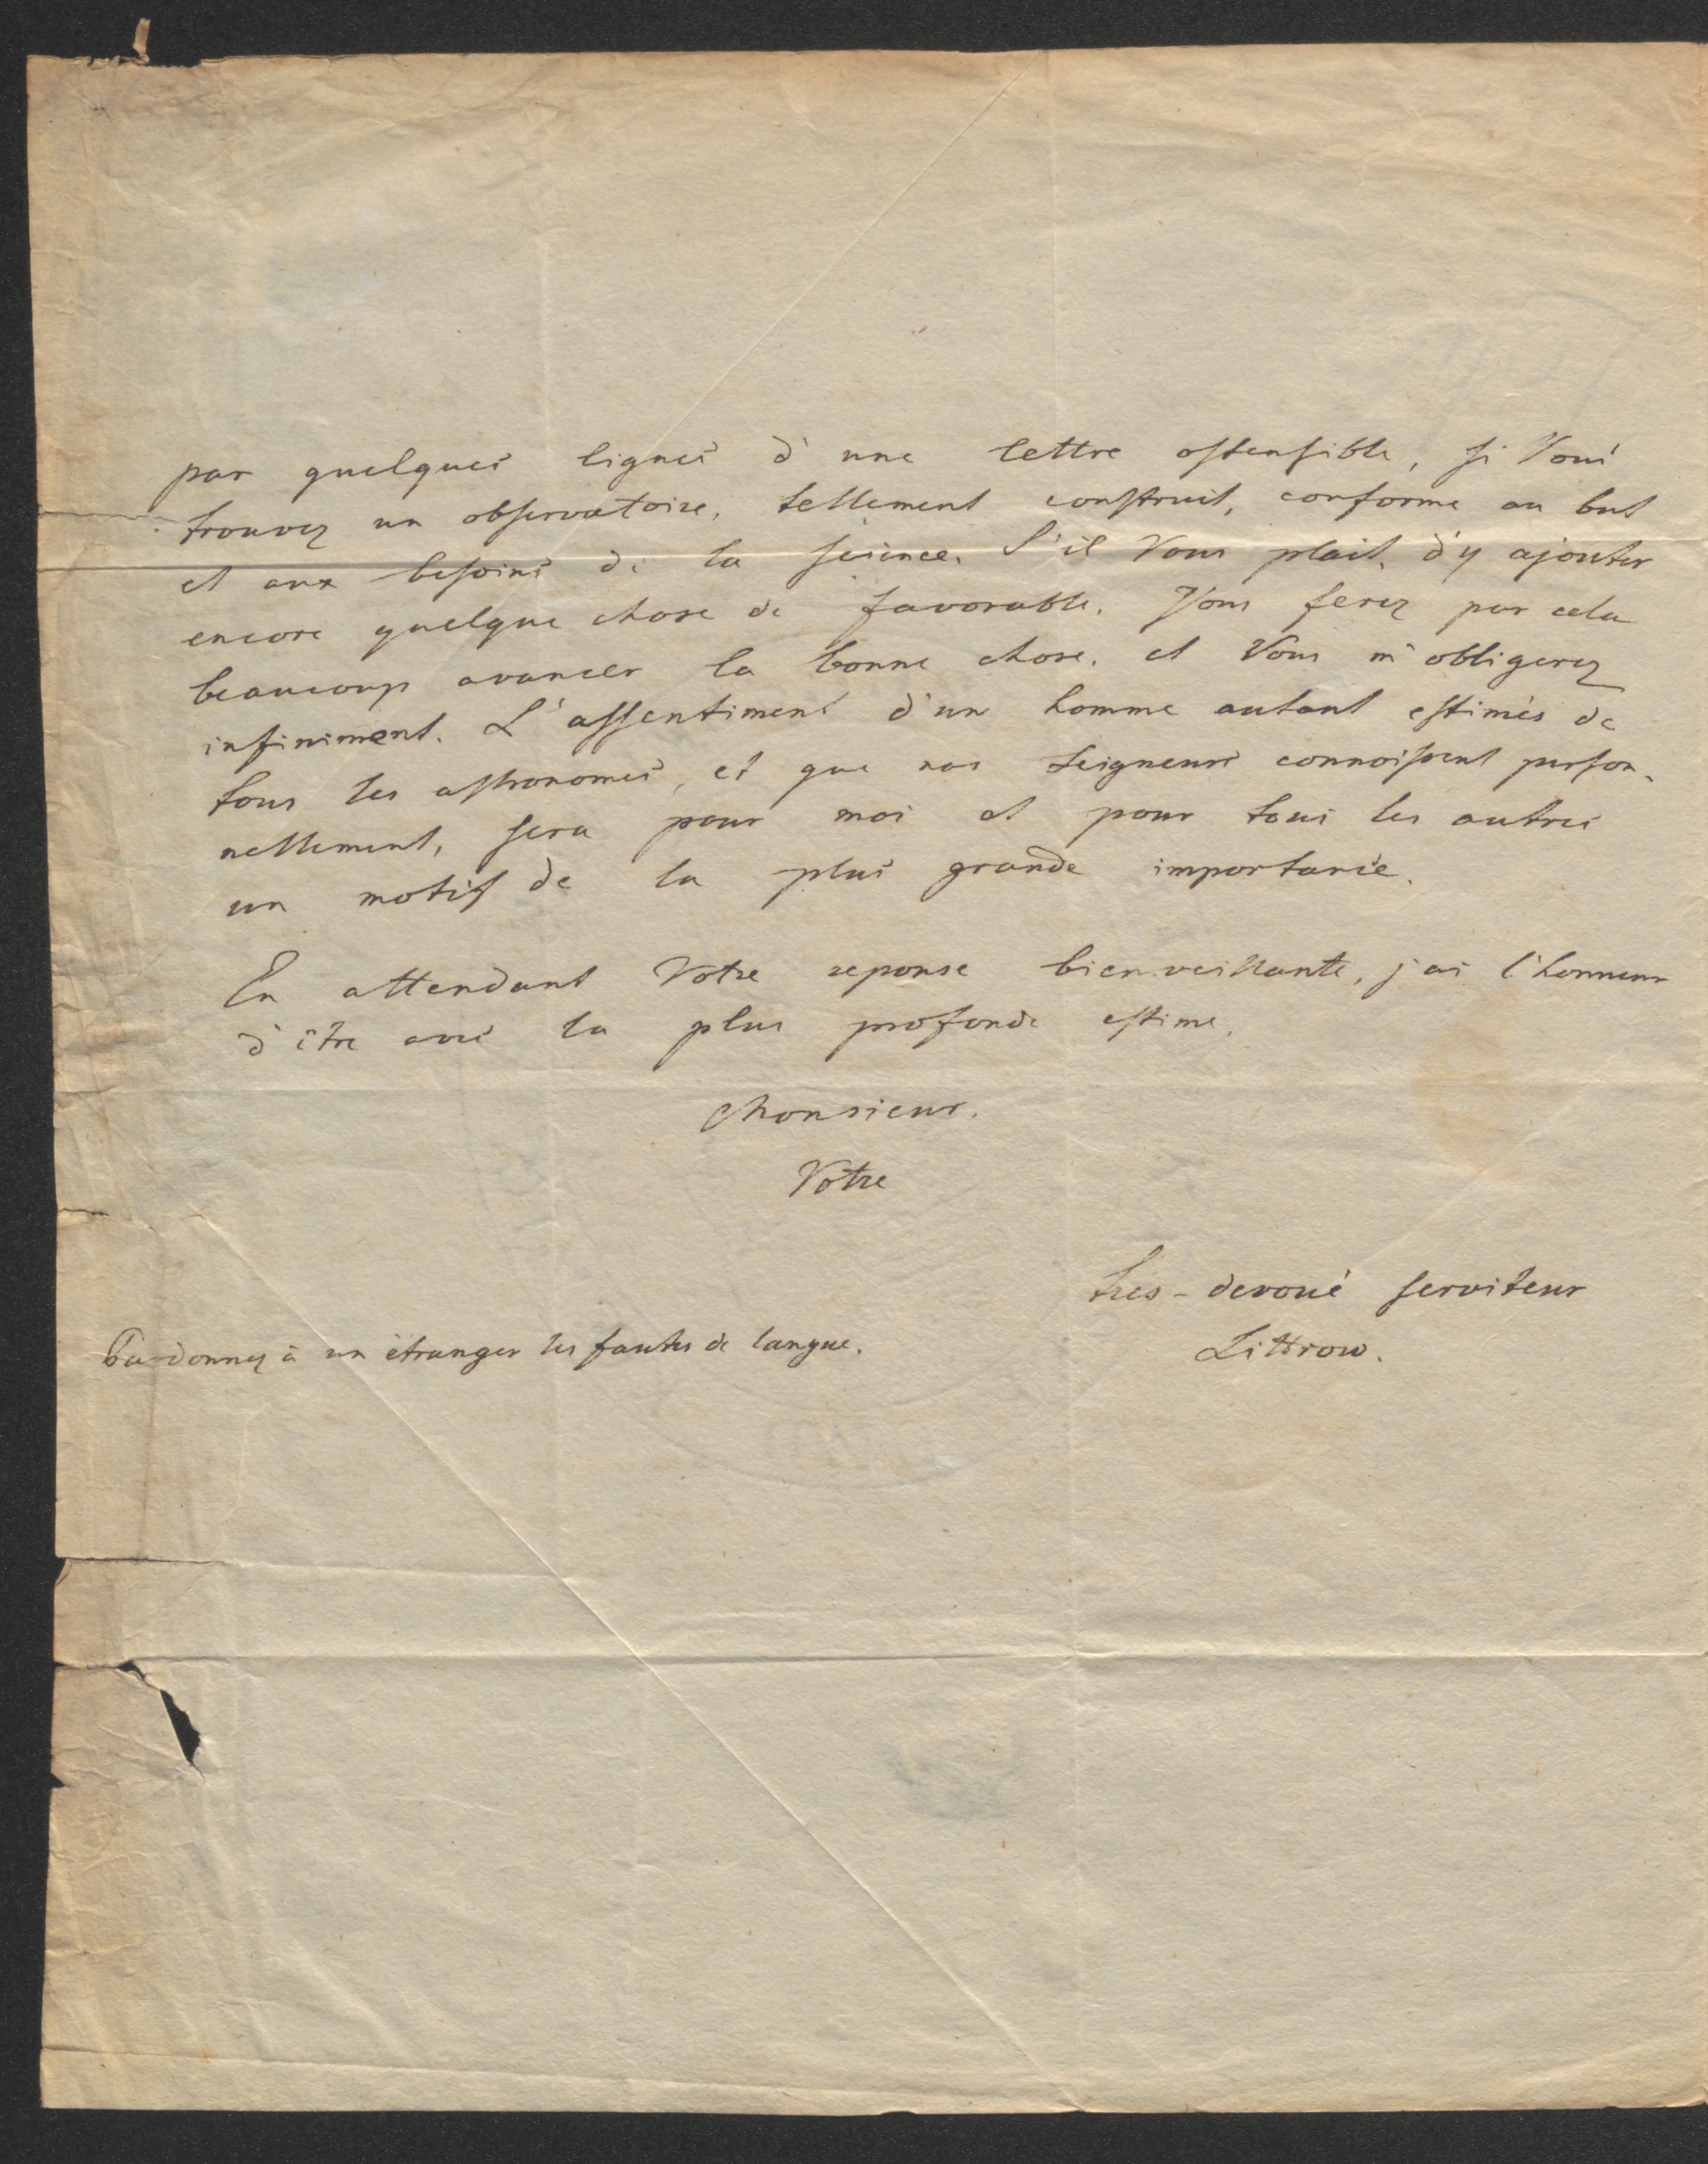 par quelques lignes d'une lettre ostensible, si Vous
trouvez un observatoire, tellement construit, conforme au but
et aux besoins de la science. S'il Vous plait, d'y ajouter
encore quelque chose de favorable. Vous ferez par cela
beaucoup avancer la bonne chose, et Vous m'obligerez
infiniment. L'assentiment d'un homme autant estimés de
tous les astronomes, et que nos Seigneurs connoissent person-
nellement, sera pour moi et pour tous les autres
un motif de la plus grande importance.
En attendant Votre reponse bienveillante, j'ai l'honneur
d'être avec la plus profonde estime,
Monsieur.
Vôtre
très-devoué serviteur
Littrow.
Pardonnez à un étranger les fautes de langue.